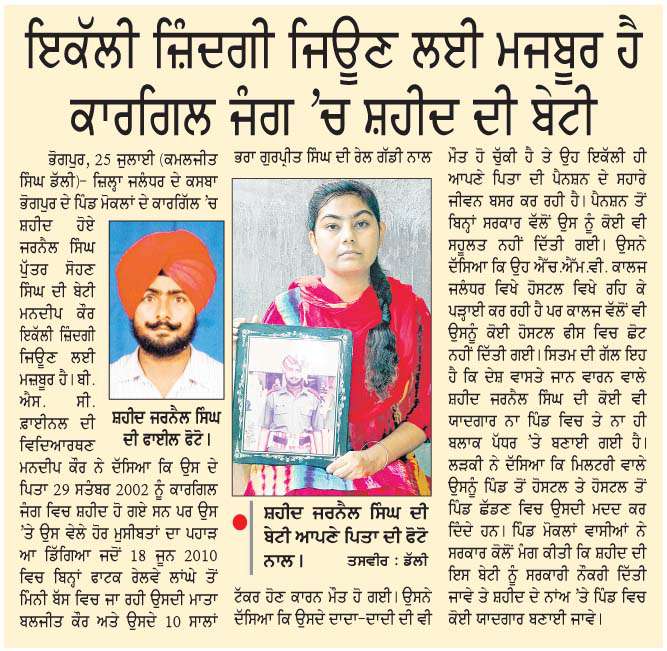 ਇਕੱਲੀ ਜ਼ਿੰਦਗੀ ਜਿਊਣ ਲਈ ਮਜਬੂਰ ਹੈ
ਕਾਰਗਿਲ ਜੰਗ ’ਚ ਸ਼ਹੀਦ ਦੀ ਬੇਟੀ
ਭੋਗਪੁਰ, 25 ਜੁਲਾਈ (ਕਮਲਜੀਤ
ਸਿੰਘ ਡੱਲੀ)- ਜ਼ਿਲ੍ਹਾ ਜਲੰਧਰ ਦੇ ਕਸਬਾ
ਭੋਗਪੁਰ ਦੇ ਪਿੰਡ ਮੋਕਲਾਂ ਦੇ ਕਾਰਗਿੱਲ ’ਚ
ਸ਼ਹੀਦ ਹੋਏ
ਜਰਨੈਲ ਸਿੰਘ
ਪੁੱਤਰ ਸੋਹਣ
ਸਿੰਘ ਦੀ ਬੇਟੀ
ਮਨਦੀਪ ਕੌਰ
ਇਕੱਲੀ ਜ਼ਿੰਦਗੀ
ਜਿਊਣ ਲਈ
ਮਜ਼ਬੂਰ ਹੈ। ਬੀ.
ਐਸ. ਸੀ.
ਫ਼ਾਈਨਲ ਦੀ
ਵਿਦਿਆਰਥਣ
ਮਨਦੀਪ ਕੌਰ ਨੇ ਦੱਸਿਆ ਕਿ ਉਸ ਦੇ
ਪਿਤਾ 29 ਸਤੰਬਰ 2002 ਨੂੰ ਕਾਰਗਿਲ
ਜੰਗ ਵਿਚ ਸ਼ਹੀਦ ਹੋ ਗਏ ਸਨ ਪਰ ਉਸ
’ਤੇ ਉਸ ਵੇਲੇ ਹੋਰ ਮੁਸੀਬਤਾਂ ਦਾ ਪਹਾੜ
ਆ ਡਿੱਗਿਆ ਜਦੋਂ 18 ਜੂਨ 2010
ਵਿਚ ਬਿਨ੍ਹਾਂ ਫਾਟਕ ਰੇਲਵੇ ਲਾਂਘੇ ਤੋਂ
ਮਿੰਨੀ ਬੱਸ ਵਿਚ ਜਾ ਰਹੀ ਉਸਦੀ ਮਾਤਾ
ਬਲਜੀਤ ਕੌਰ ਅਤੇ ਉਸਦੇ 10 ਸਾਲਾਂ
ਸ਼ਹੀਦ ਜਰਨੈਲ ਸਿੰਘ
ਦੀ ਫਾਈਲ ਫੋਟੋ।
ਭਰਾ ਗੁਰਪ੍ਰੀਤ ਸਿੰਘ ਦੀ ਰੇਲ ਗੱਡੀ ਨਾਲ
ਸ਼ਹੀਦ ਜਰਨੈਲ ਸਿੰਘ ਦੀ
ਬੇਟੀ ਆਪਣੇ ਪਿਤਾ ਦੀ ਫੋਟੋ
ਨਾਲ। ਤਸਵੀਰ : ਡੱਲੀ
ਟੱਕਰ ਹੋਣ ਕਾਰਨ ਮੌਤ ਹੋ ਗਈ। ਉਸਨੇ
ਦੱਸਿਆ ਕਿ ਉਸਦੇ ਦਾਦਾ-ਦਾਦੀ ਦੀ ਵੀ
ਮੌਤ ਹੋ ਚੁੱਕੀ ਹੈ ਤੇ ਉਹ ਇਕੱਲੀ ਹੀ
ਆਪਣੇ ਪਿਤਾ ਦੀ ਪੈਨਸ਼ਨ ਦੇ ਸਹਾਰੇ
ਜੀਵਨ ਬਸਰ ਕਰ ਰਹੀ ਹੈ। ਪੈਨਸ਼ਨ ਤੋਂ
ਬਿਨ੍ਹਾਂ ਸਰਕਾਰ ਵੱਲੋਂ ਉਸ ਨੂੰ ਕੋਈ ਵੀ
ਸਹੂਲਤ ਨਹੀਂ ਦਿੱਤੀ ਗਈ। ਉਸਨੇ
ਦੱਸਿਆ ਕਿ ਉਹ ਐੱਚ.ਐੱਮ.ਵੀ. ਕਾਲਜ
ਜਲੰਧਰ ਵਿਖੇ ਹੋਸਟਲ ਵਿਖੇ ਰਹਿ ਕੇ
ਪੜ੍ਹਾਈ ਕਰ ਰਹੀ ਹੈ ਪਰ ਕਾਲਜ ਵੱਲੋਂ ਵੀ
ਉਸਨੂੰ ਕੋਈ ਹੋਸਟਲ ਫੀਸ ਵਿਚ ਛੋਟ
ਨਹੀਂ ਦਿੱਤੀ ਗਈ। ਸਿਤਮ ਦੀ ਗੱਲ ਇਹ
ਹੈ ਕਿ ਦੇਸ਼ ਵਾਸਤੇ ਜਾਨ ਵਾਰਨ ਵਾਲੇ
ਸ਼ਹੀਦ ਜਰਨੈਲ ਸਿੰਘ ਦੀ ਕੋਈ ਵੀ
ਯਾਦਗਾਰ ਨਾ ਪਿੰਡ ਵਿਚ ਤੇ ਨਾ ਹੀ
ਬਲਾਕ ਪੱਧਰ ’ਤੇ ਬਣਾਈ ਗਈ ਹੈ।
ਲੜਕੀ ਨੇ ਦੱਸਿਆ ਕਿ ਮਿਲਟਰੀ ਵਾਲੇ
ਉਸਨੂੰ ਪਿੰਡ ਤੋਂ ਹੋਸਟਲ ਤੇ ਹੋਸਟਲ ਤੋਂ
ਪਿੰਡ ਛੱਡਣ ਵਿਚ ਉਸਦੀ ਮਦਦ ਕਰ
ਦਿੰਦੇ ਹਨ। ਪਿੰਡ ਮੋਕਲਾਂ ਵਾਸੀਆਂ ਨੇ
ਸਰਕਾਰ ਕੋਲੋਂ ਮੰਗ ਕੀਤੀ ਕਿ ਸ਼ਹੀਦ ਦੀ
ਇਸ ਬੇਟੀ ਨੂੰ ਸਰਕਾਰੀ ਨੌਕਰੀ ਦਿੱਤੀ
ਜਾਵੇ ਤੇ ਸ਼ਹੀਦ ਦੇ ਨਾਂਅ ’ਤੇ ਪਿੰਡ ਵਿਚ
ਕੋਈ ਯਾਦਗਾਰ ਬਣਾਈ ਜਾਵੇ।